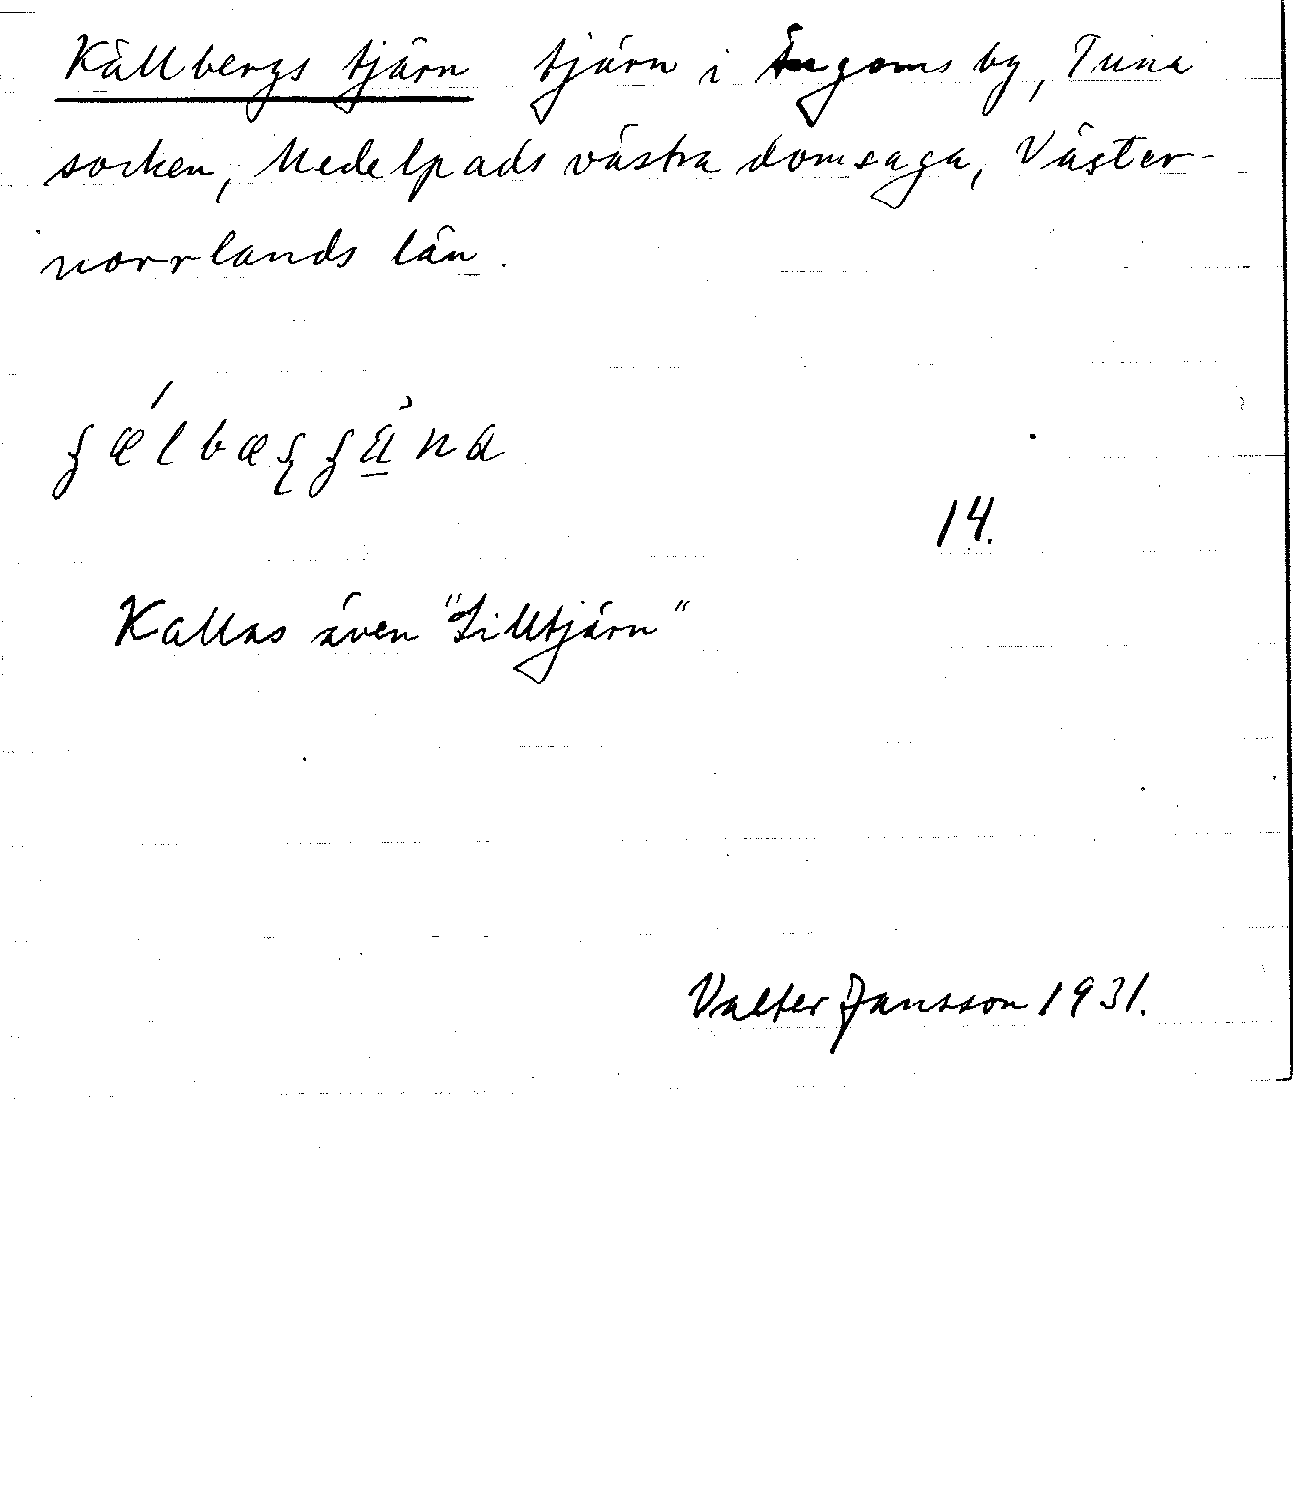 Källbergstjärn tjärn i Ängoms by, Tuna
socken, Medelpads västra domsaga, Väster-
norrlands län.
14.
Kallas även "Lilltjärn"
Valter Jansson 1931.